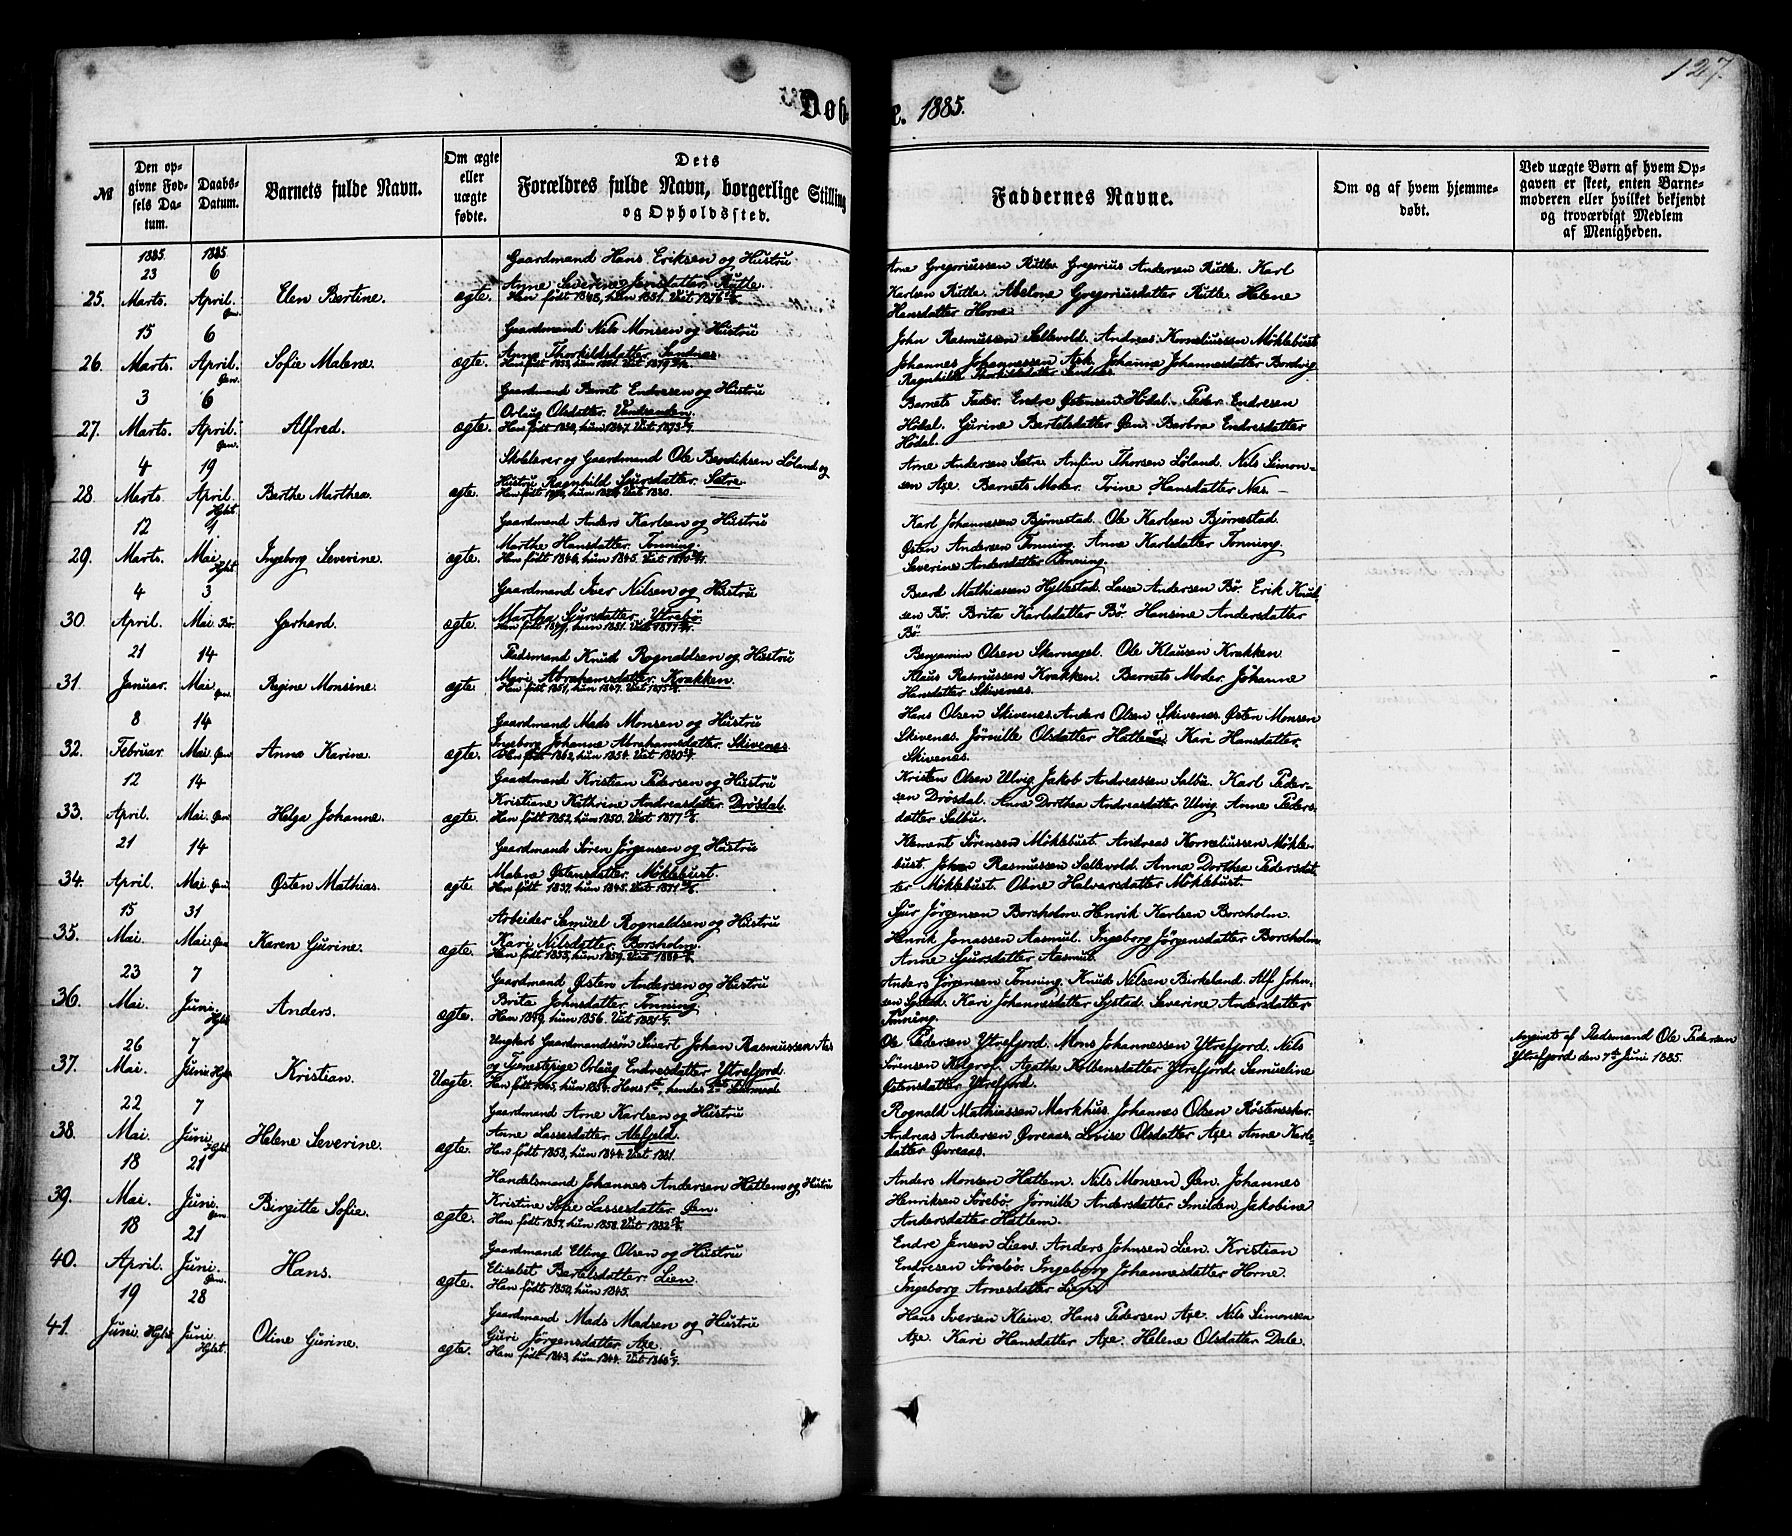 127.
Døbte. 1885.
№
Den opgivne Fødsels Datum.
Daabs-Datum.
Barnets fulde Navn.
Om ægte eller uægte fødte.
Dets Forældres fulde Navn, borgerlige Stilling og Opholdssted.
Faddernes Navne.
Om og af hvem hjemmedøbt.
Ved uægte Børn af hvem Opgaven er skeet, enten Barnemoderen eller hvilket bekjendt og troværdigt Medlem af Menigheden.
1885. 1885.
25. 23 Marts. 6 April. Elen Bertine. ægte.
Gaardmand Hans Eriksen og Hustru
Anne Severine Jensdatter Rutle
Han født 1848, hun 1851. Viet 1876
Arne Gregoriussen Rutle. Gregorius Andersen Rutle. Karl
Karlsen Rutle. Abelone Gregoriusdatter Rutle. Helene
Hansdatter Horne
26. 15 Marts. 6 April. Sofie Malene. ægte.
Gaardmand Nils Monsen og Hustru
Anne Thorkildsdatter Sandnæs
John Rasmussen Sallevold. Andreas Korneliussen Møklebust.
Johannes Johannessen Ask. Johanne Johannesdatter Bordvig
Ragnhilde Thorkildsdatter Sandnæs
27. 3 Marts. 6 April. Alfred. ægte.
Gaardmand Bernt Endresen og Hustru
Orlaug Olsdatter
Han født 1850, hun 1847. Viet 1873
Barnets Fader. Endre Østensen Hødal. Peder Endresen
Hødal. Gurine Bertelsdatter Øen. Barbra Endresdatter
Hødal.
28. 4 Marts. 19 April. Hylst. Berthe Marthea. ægte.
Skolelærer og Gaardmand Ole Bendiksen Løland og
Hustru Ragnhild Sjursdatter Sætre
Arne Andersen Sætre. Anfin Thorsen Løland. Nils Simon-
sen Axe. Barnets Moder. Trine Hansdatter Næs.
29. 12 Marts. Mai Hylst. Ingeborg Severine. ægte.
Gaardmand Anders Karlsen og Hustru
Marthe Hansdatter Tonning.
Han født 1846, hun 1845. Viet 1870
Karl Johannesen Bjørnestad. Ole Karlsen Bjørnestad.
Østen Andersen Tonning. Anne Karlsdatter Tonning.
Severine Andersdatter Tonning.
30. 4 April. 3 Mai Bø. Gerhard. ægte.
Gaardmand Iver Nilsen og Hustru
Marthe Sjursdatter Ytrebø.
Baard Mathiassen Hyllestad. Lasse Andersen Bø. Erik Knud-
sen Bø. Brita Karlsdatter Bø. Hansine Andersdatter
Bø.
31. 21 Januar. 14 Mai. Øen Regine Monsine. ægte.
Pladsmand Knud Rognaldsen og Hustru
Mari Abrahamsdatter Krakken.
Han født 1851, hun 1847. Viet 1875
Benjamin Olsen Skarnagel. Ole Klausen Krakken.
Klaus Rasmussen Krakken. Barnets Moder. Johanne
Hansdatter Skivenes.
32. 8 Februar 14 Mai Øen Anna Karine. ægte.
Gaardmand Mads Monsen og Hustru
Ingeborg Johanne Abrahamsdatter Skivenes
Han født 1862, hun 1854. Viet 1880
Hans Olsen Skivenes. Anders Olsen Skivenes. Østen Monsen
Skivenes. Jørnille Olsdatter Hatlem. Kari Hansdatter
Skivenes.
33. 12 April. 14 Mai. Øen Helga Johanne. ægte.
Gaardmand Kristian Pedersen og Hustru
Kristiane Kathrine Andreasdatter Drøsdal.
Han født 1852, hun 1850. Viet 1877
Kristen Olsen Ulvig. Jakob Andreassen Salbu. Karl Peder-
sen Drøsdal. Anne Dorthea Andreasdatter Ulvig. Anne Peders-
datter Salbu.
34. 21 April. 14 Mai Øen Østen Mathias. ægte.
Gaardmand Søren Jørgensen og Hustru
Malene Østensdatter. Møklebust.
Han født 1837, hun 1845. Viet 1871
Klement Sørensen Møklebust. Andreas Korneliussen Møkle-
bust. Johan Rasmussen Sallevold. Anna Dorthea Pedersdat-
ter Møklebust. Oline Halvarsdatter Møklebust.
35. 15 Mai. 31 Mai. Øen Karen Gurine. ægte.
Arbeider Samuel Rognaldsen og Hustru
Kari Nilsdatter Borsholm.
Sjur Jørgensen Borsholm. Henrik Karlsen Borsholm.
Henrik Jonassen Aasmul. Ingeborg Jørgensdatter Borsholm
Anne Sjursdatter Aasmul.
36. 23 Mai. 7 Juni Hylst. Anders. ægte.
Gaardmand Østen Andersen og Hustru
Brita Johnsdatter Tonning
Han 1849, hun 1856. Viet 1881
Anders Jørgensen Tonning. Knud Nilsen Birkeland. Alf John-
sen Systad. Kari Johannesdatter Systad. Severine Andersdatter
Tonning.
37. 26 Mai. 7 Juni Hylst. Kristian. Uægte.
Ungkarl Gaardmandssøn Sivart Johan Rasmussen Aas
og Tjenestepige Orlaug Endresdatter Ytrefjord.
Ole Pedersen Ytrefjord. Mons Johannessen Ytrefjord. Nils
Sørensen Kolgrof. Agathe Kolbensdatter Ytrefjord. Samueline
Østensdatter Ytrefjord.
Angivet af Pladsmand Ole Pedersen
Ytrefjord den 7de Juni 1885.
38. 22 Mai. 7 Juni Hylst. Helene Severine. ægte.
Gaardmand Arne Karlsen og Hustru
Anne Lassesdatter Akfjeld.
Han født 1853, hun 1844. Viet 1881.
Rognald Mathiassen Markhus. Johannes Olsen Røstenskar.
Andreas Andersen Øvreaas. Lovise Olsdatter Axe. Anne Karls-
datter Øvreaas.
39. 18 Mai. 21 Juni. Øen Birgitte Sofie. ægte.
Handelsmand Johannes Andersen Hatlem og Hustru
Kristine Sofie Lassesdatter Øen.
Han født 1857, hun 1858. Viet 1882
Anders Monsen Hatlem. Nils Monsen Øen. Johannes
Henriksen Sørebø. Jørnille Andersdatter Smilden. Jakobine
Andersdatter Hatlem.
40. 18 April. 21 Juni. Øen Hans. ægte.
Gaardmand Elling Olsen og Hustru
Elisabet Bertelsdatter Lien.
Han født 1850, hun 1845.
Endre Jensen Lien. Anders Johnsen Lien. Kristian
Endresen Sørebø. Ingeborg Johannesdatter Horne.
Ingeborg Arnesdatter Lien
41. 19 Juni. Hylst 28 Juni. Hylst. Oline Gurine. ægte.
Gaardmand Mads Madsen og Hustru
Guri Jørgensdatter Axe.
Han født 1843, hun 1844. Viet 1868
Hans Iversen Kleive. Hans Pedersen Axe. Nils Simonsen
Axe. Kari Hansdatter Axe. Helene Olsdatter Dale.